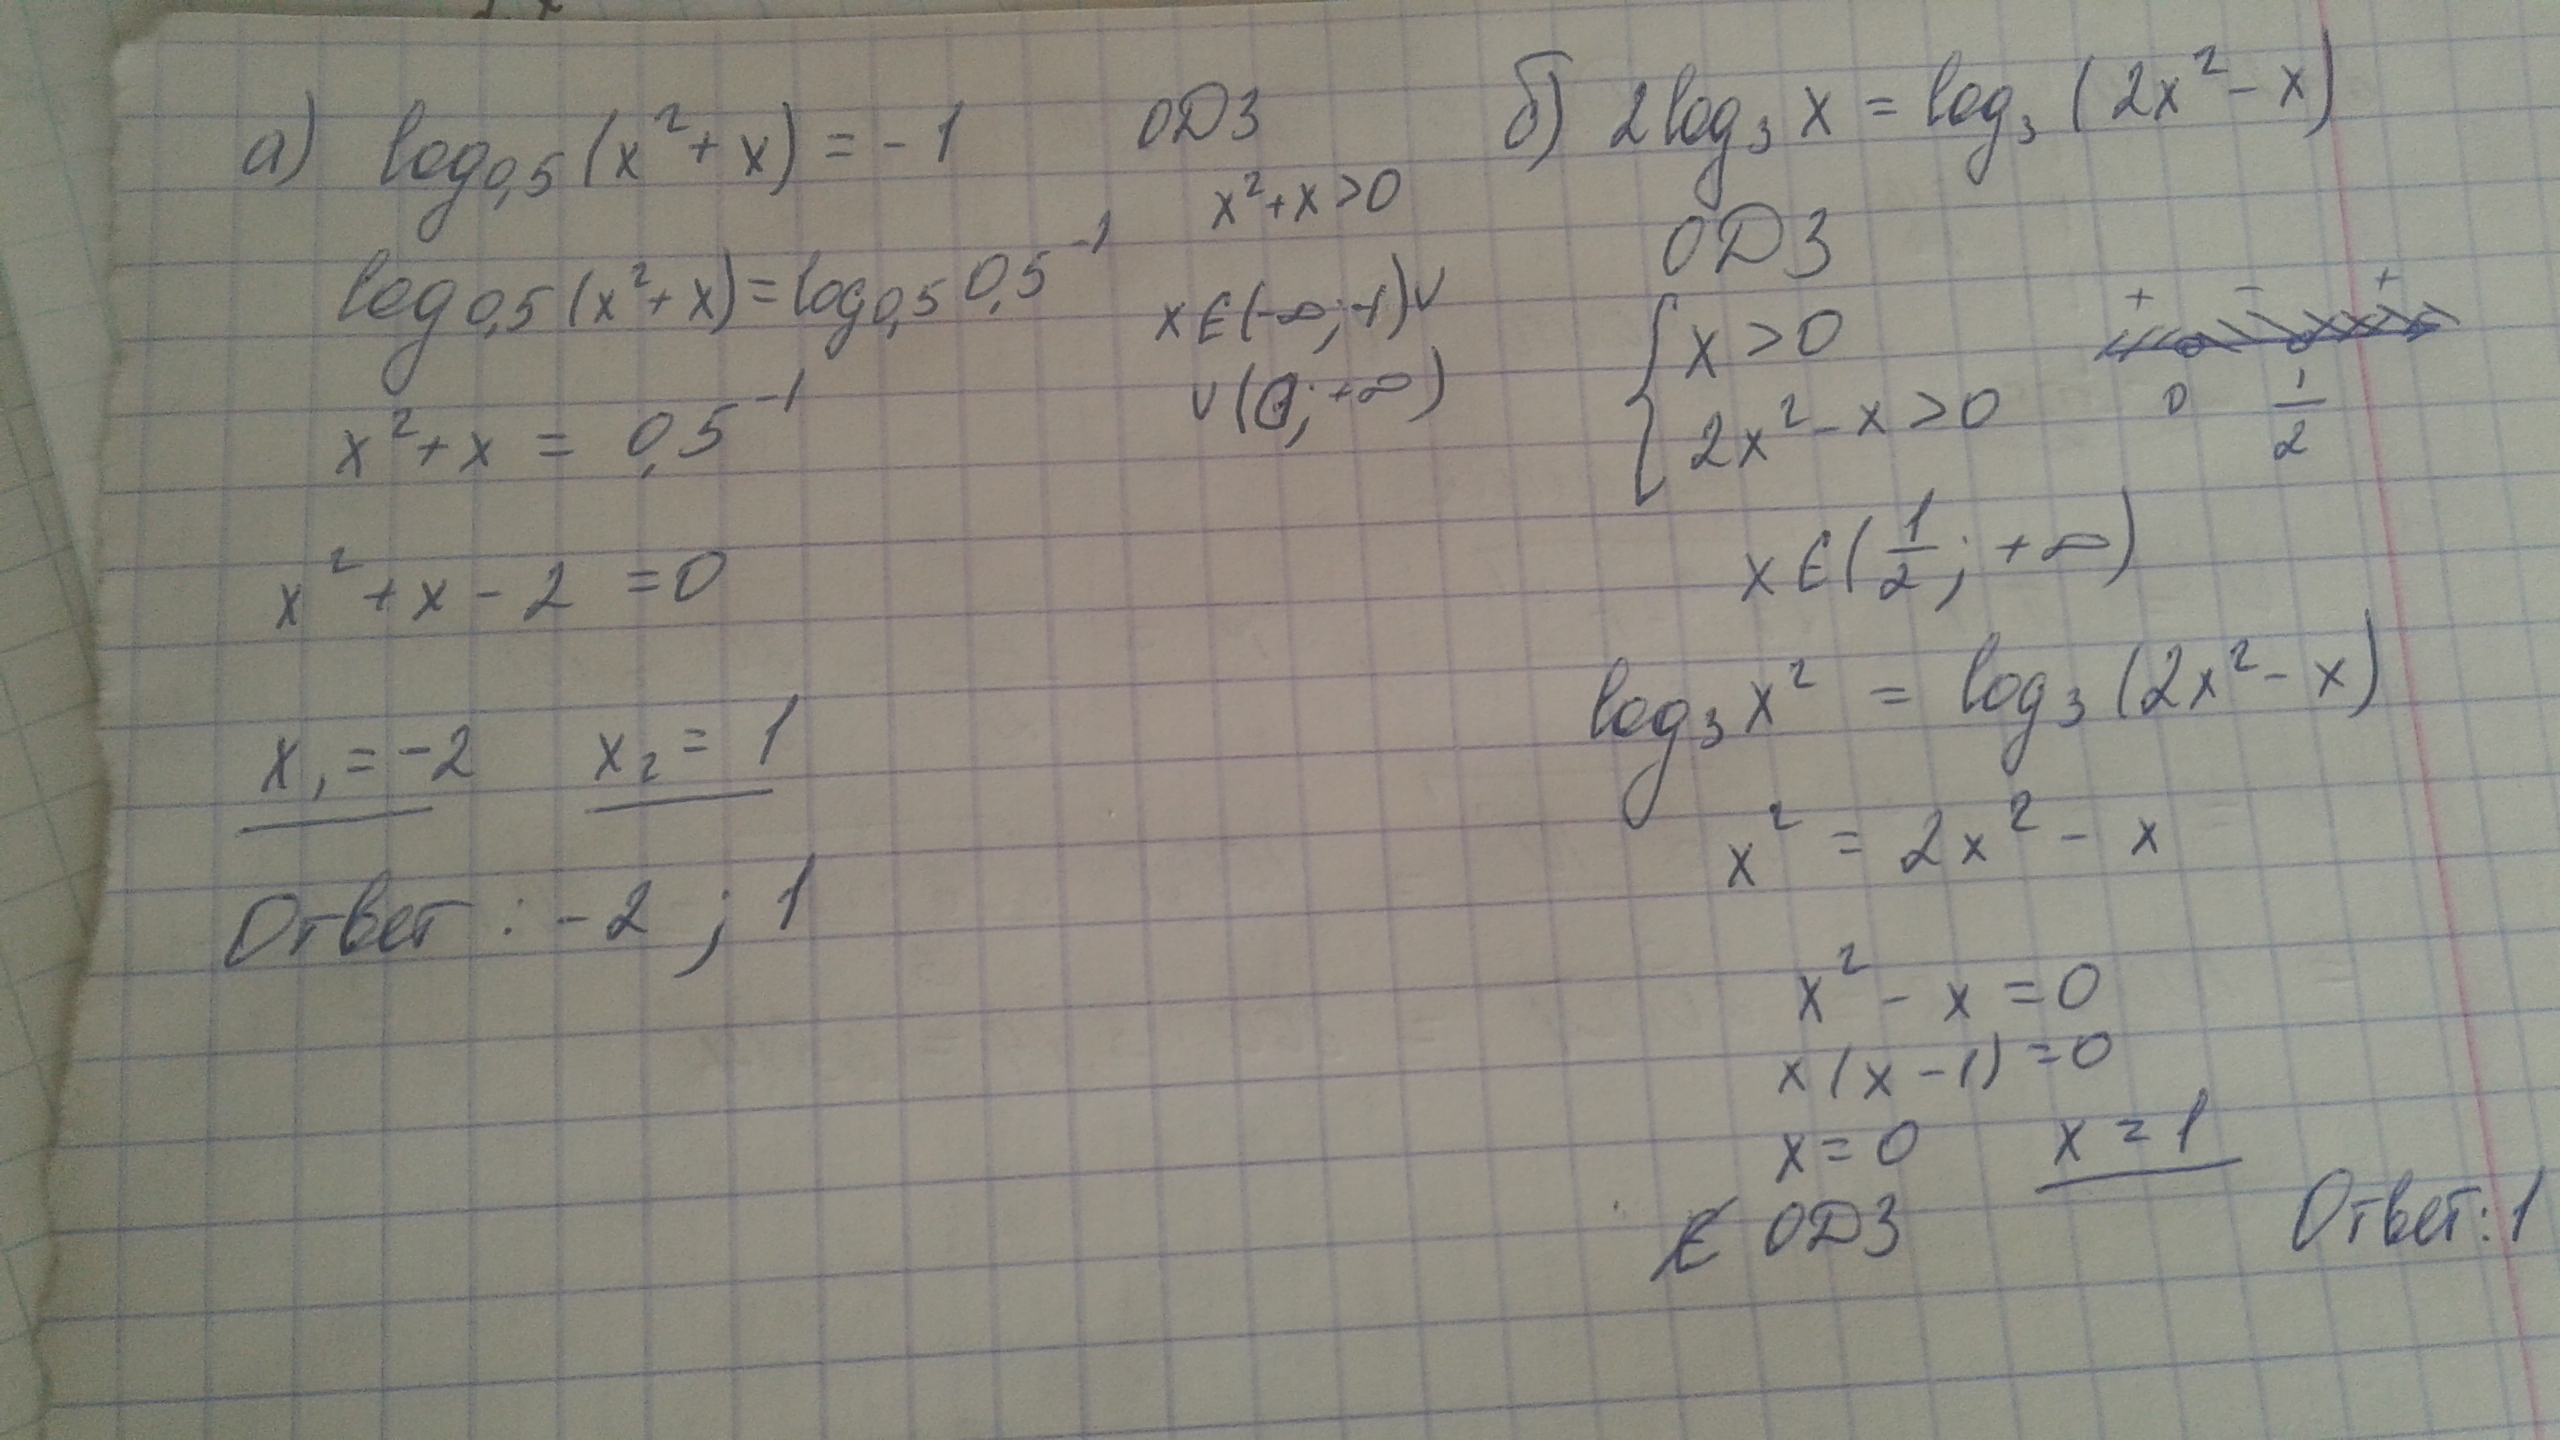 а) log₀,₅(x²+x) = -1
log₀,₅(x²+x) = log₀,₅ 0,5⁻¹
x²+x = 0,5⁻¹
x²+x-2 = 0
x₁ = -2   x₂ = 1
Ответ: -2; 1
ОДЗ
x²+x>0
x∈(-∞;-1)∪
∪(0;+∞)
б) 2log₃x = log₃(2x²-x)
ОДЗ
{ x>0
2x²-x>0
+ - +
0 1/2
x∈(1/2;+∞)
log₃x² = log₃(2x²-x)
x² = 2x²-x
x²-x=0
x(x-1)=0
x=0   x=1
∉ ОДЗ
Ответ: 1